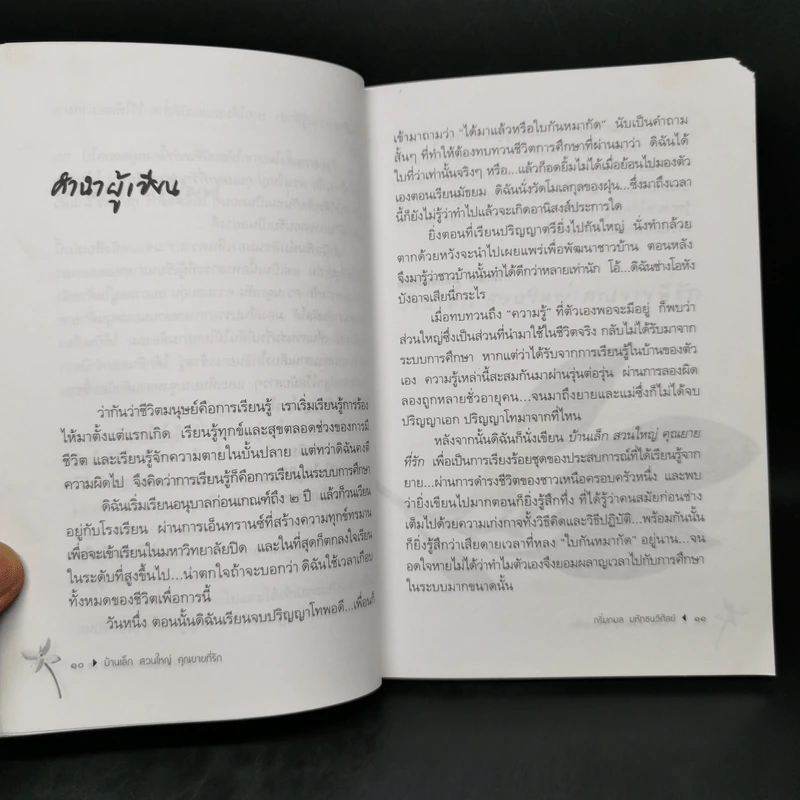 คำนำผู้เขียน
ว่ากันว่าชีวิตมนุษย์คือการเรียนรู้ เราเริ่มเรียนรู้การร้อง
ไห้มาตั้งแต่แรกเกิด เรียนรู้ทุกข์และสุขตลอดช่วงของการมี
ชีวิต และเรียนรู้จักความตายในบั้นปลาย แต่ทว่าดิฉันคงตี
ความผิดไป จึงคิดว่าการเรียนรู้ก็คือการเรียนในระบบการศึกษา
ดิฉันเริ่มเรียนอนุบาลก่อนเกณฑ์ถึง ๒ ปี แล้วก็วนเวียน
อยู่กับโรงเรียน ผ่านการเอ็นทรานซ์ที่สร้างความทุกข์ทรมาน
เพื่อจะเข้าเรียนในมหาวิทยาลัยปิด และในที่สุดก็ตกลงใจเรียน
ในระดับที่สูงขึ้นไป...น่าตกใจถ้าจะบอกว่า ดิฉันใช้เวลาเกือบ
ทั้งหมดของชีวิตเพื่อการนี้
วันหนึ่ง ตอนนั้นดิฉันเรียนจบปริญญาโทพอดี...เพื่อนก็
๑๐ บ้านเล็ก สวนใหญ่ คุณยายที่รัก
เข้ามาถามว่า "ได้มาแล้วหรือใบกันหมากัด" นับเป็นคำถาม
สั้นๆ ที่ทำให้ต้องทบทวนชีวิตการศึกษาที่ผ่านมาว่า ดิฉันได้
ใบที่ว่าเท่านั้นจริงๆ หรือ...แล้วก็อดยิ้มไม่ได้เมื่อย้อนไปมองตัว
เองตอนเรียนมัธยม ดิฉันนั่งวัดโมเลกุลของฝุ่น...ซึ่งมาถึงเวลา
นี้ก็ยังไม่รู้ว่าทำไปแล้วจะเกิดอานิสงส์ประการใด
ยิ่งตอนที่เรียนปริญญาตรียิ่งไปกันใหญ่ นั่งทำกล้วย
ตากด้วยหวังจะนำไปเผยแพร่เพื่อพัฒนาชาวบ้าน ตอนหลัง
จึงมารู้ว่าชาวบ้านนั้นทำได้ดีกว่าหลายเท่านัก โอ้...ดิฉันช่างโอหัง
บังอาจเสียนี่กระไร
เมื่อทบทวนถึง "ความรู้" ที่ตัวเองพอจะมีอยู่ ก็พบว่า
ส่วนใหญ่ซึ่งเป็นส่วนที่นำมาใช้ในชีวิตจริง กลับไม่ได้รับมาจาก
ระบบการศึกษา หากแต่ว่าได้รับจากการเรียนรู้ในบ้านของตัว
เอง ความรู้เหล่านี้สะสมกันมาผ่านรุ่นต่อรุ่น ผ่านการลองผิด
ลองถูกหลายชั่วอายุคน...จนมาถึงยายและแม่ซึ่งก็ไม่ได้จบ
ปริญญาเอก ปริญญาโทมาจากที่ไหน
หลังจากนั้นดิฉันก็นั่งเขียน บ้านเล็ก สวนใหญ่ คุณยาย
ที่รัก เพื่อเป็นการเรียงร้อยชุดของประสบการณ์ที่ได้เรียนรู้จาก
ยาย...ผ่านการดำรงชีวิตของชาวเหนือครอบครัวหนึ่ง และพบ
ว่ายิ่งเขียนไปมากตอนก็ยิ่งรู้สึกทึ่ง ที่ได้รู้ว่าคนสมัยก่อนช่าง
เต็มไปด้วยความเก่งกาจทั้งวิธีคิดและวิธีปฏิบัติ...พร้อมกันนั้น
ก็ยิ่งรู้สึกว่าเสียดายเวลาที่หลง "ใบกันหมากัด" อยู่นาน...จน
อดใจหายไม่ได้ว่าทำไมตัวเองจึงยอมผลาญเวลาไปกับการศึกษา
ในระบบมากขนาดนั้น
๑๑